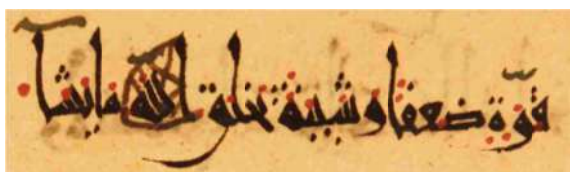 قوّة ضعفا وشيبة يخلق الله ما يشآ